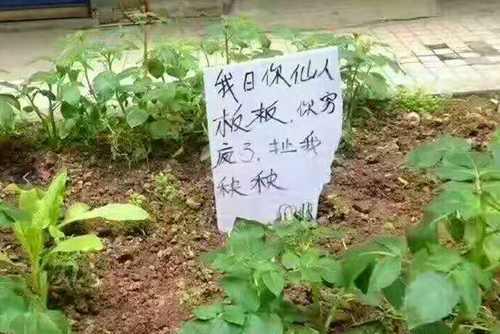 我日你仙人
板板,你穷
疯了,扯我
秧秧